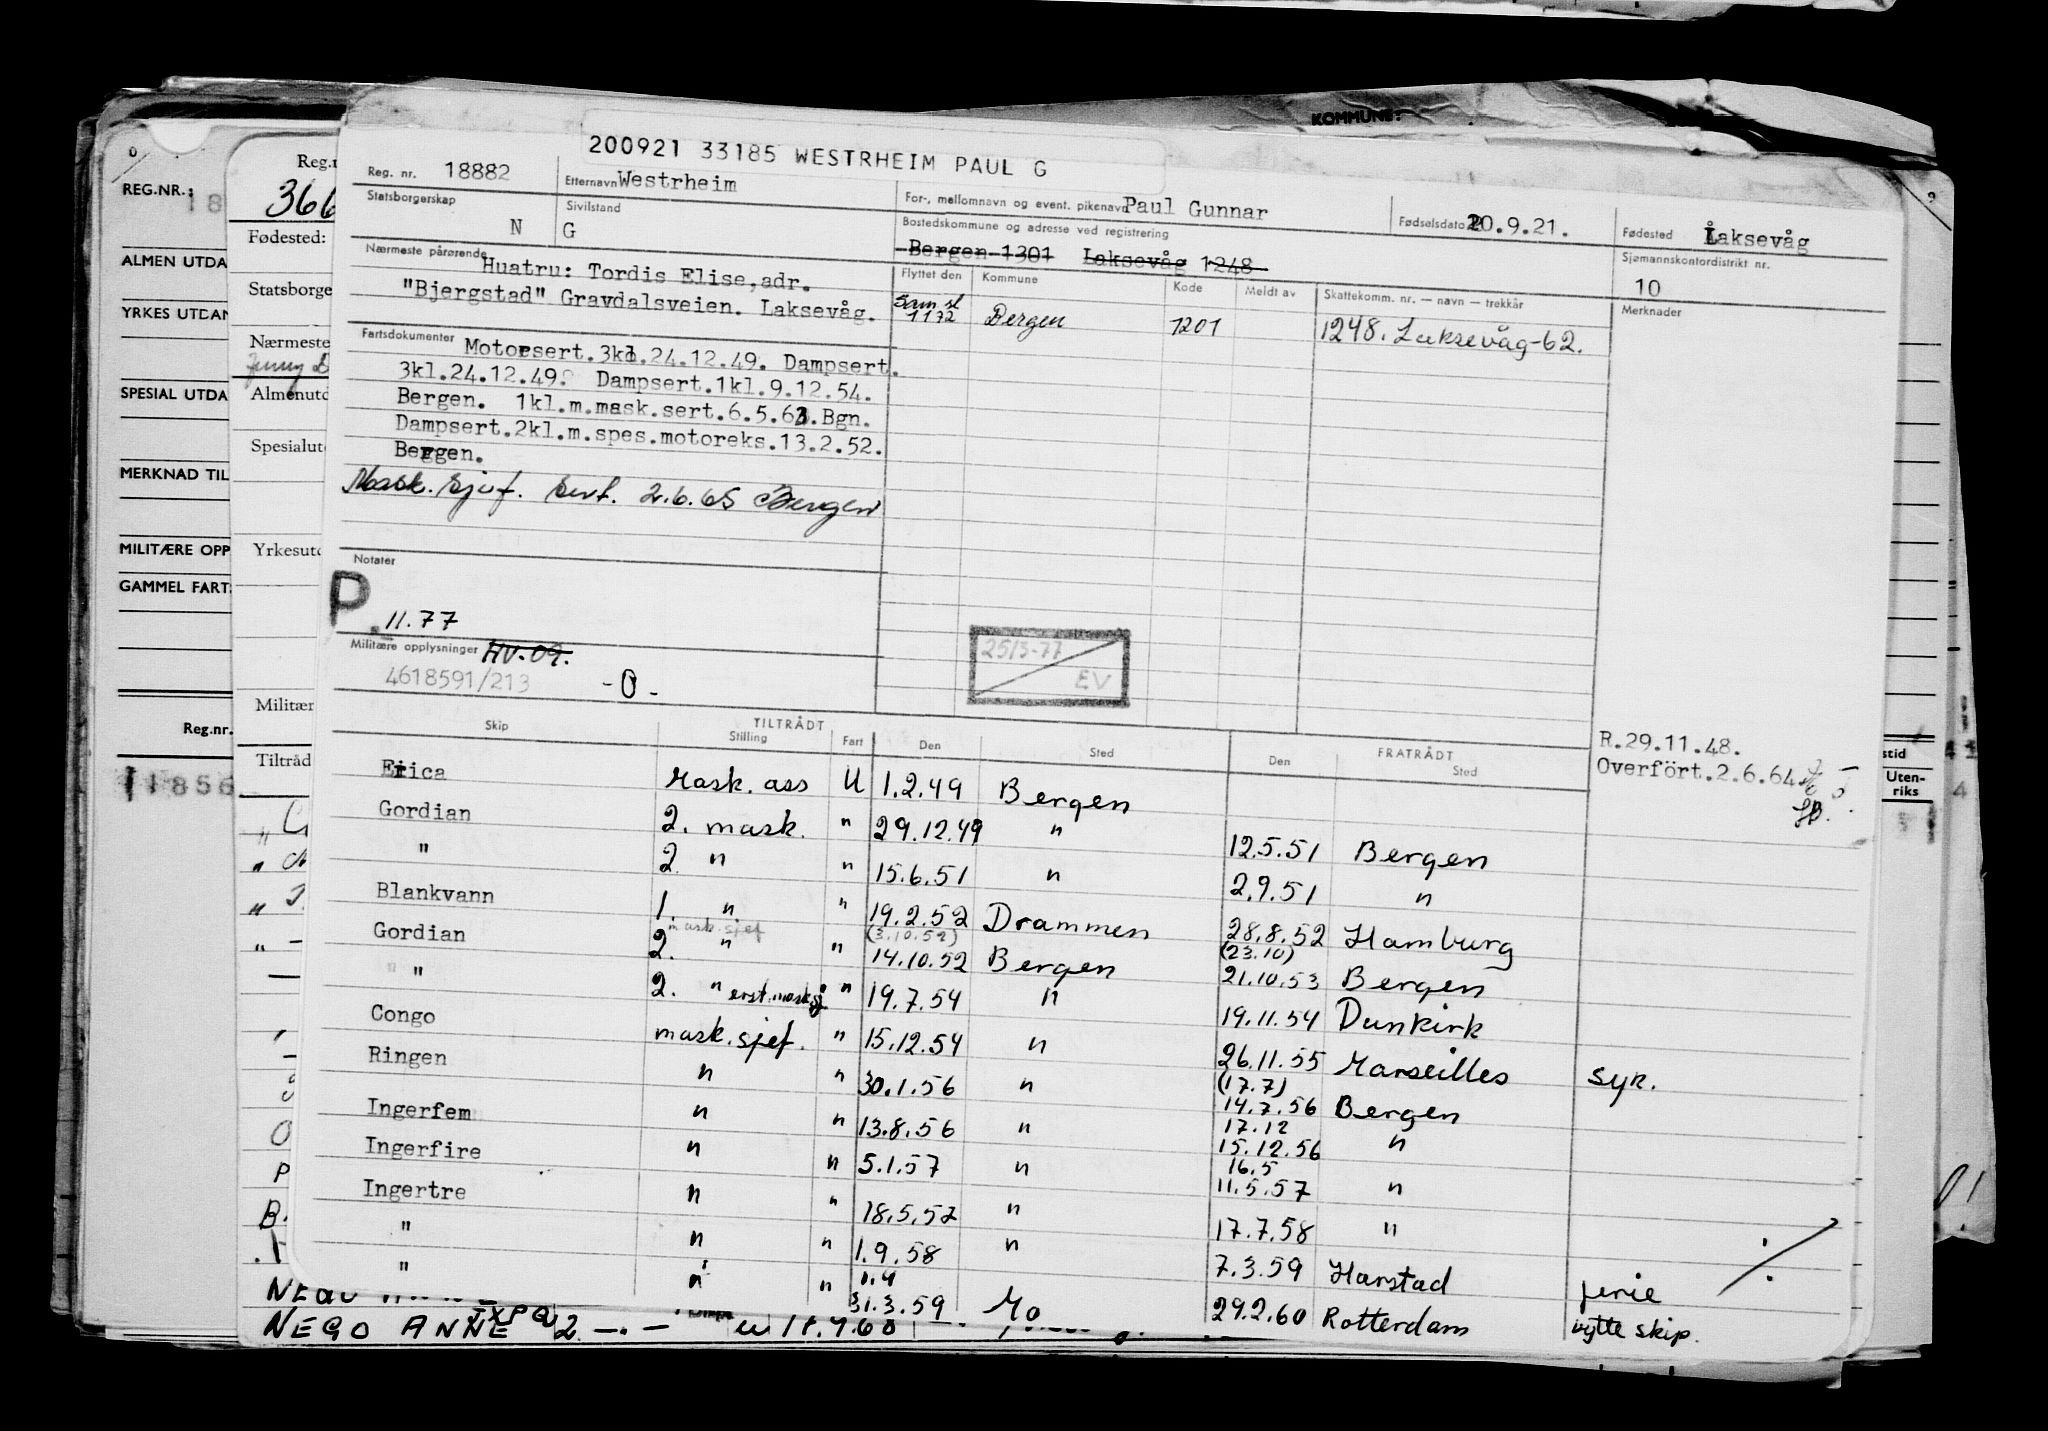 KOMMUNE:
200921 33185 WESTRHEIM PAUL G
Reg. nr. 18882 Etternavn Westrheim For-, mellomnavn og event. pikenavn Paul Gunnar Fødselsdato 20.9.21. Fødested Laksevåg
Statsborgerskap N Sivilstand G Bostedskommune og adresse ved registrering Bergen 1301 Laksevåg 1248 Sjømannskontordistrikt nr. 10
Nærmeste pårørende Huatru: Tordis Elise,adr.
"Bjergstad" Gravdalsveien. Laksevåg.
Flyttet den Kommune Kode Meldt av Skattekomm. nr. — navn — trekkår Merknader
Sam.sl 1172 Bergen 1201 1248. Laksevåg-62.
Fartsdokumenter Motorsert.3kl.24.12.49. Dampsert.
3kl.24.12.49. Dampsert.1kl.9.12.54.
Bergen. 1kl.m.mask.sert.6.5.63.Bgn.
Dampsert.2kl.m.spes.motoreks.13.2.52.
Bergen.
Mask. sjef. sert. 2.6.65 Bergen
Notater
P
11.77
Militære opplysninger HV-09.
4618591/213 -0-
25/3-77
EV
R.29.11.48.
Overfört.2.6.64
Skip TILTRÅDT Stilling Fart Den Sted FRATRÅDT Den Sted
Erica Mask. ass U 1.2.49 Bergen
Gordian 2. mask. " 29.12.49 " 12.5.51 Bergen
" 2. " " 15.6.51 " 2.9.51 "
Blankvann 1. " " 19.2.52 Drammen 28.8.52 Hamburg
mask.sjef (3.10.52) (23.10)
Gordian 2. " " 14.10.52 Bergen 21.10.53 Bergen
" 2. " erst.mask.sj " 19.7.54 " 19.11.54 Dunkirk
Congo mask.sjef. " 15.12.54 " 26.11.55 Marseilles syk.
(17.7)
Ringen " " 30.1.56 " 14.7.56 Bergen
17.12
Ingerfem " " 13.8.56 " 15.12.56 "
16.5
Ingerfire " " 5.1.57 " 11.5.57 "
Ingertre " " 18.5.57 " 17.7.58 "
" " " 1.9.58 " 7.3.59 Harstad ferie
1.4
" " " 31.3.59 Mo 29.2.60 Rotterdam bytte skip.
REG.NR.:
ALMEN UTDA
YRKES UTDAN
SPESIAL UTDA
MERKNAD TIL
MILITÆRE OPP
GAMMEL FART
Reg.nr.
366
Fødested:
Statsborge
Nærmeste
Almenutd
Spesialut
Yrkesutd
Militær
Tiltråd
Uten-
riks
NEGO ANNE